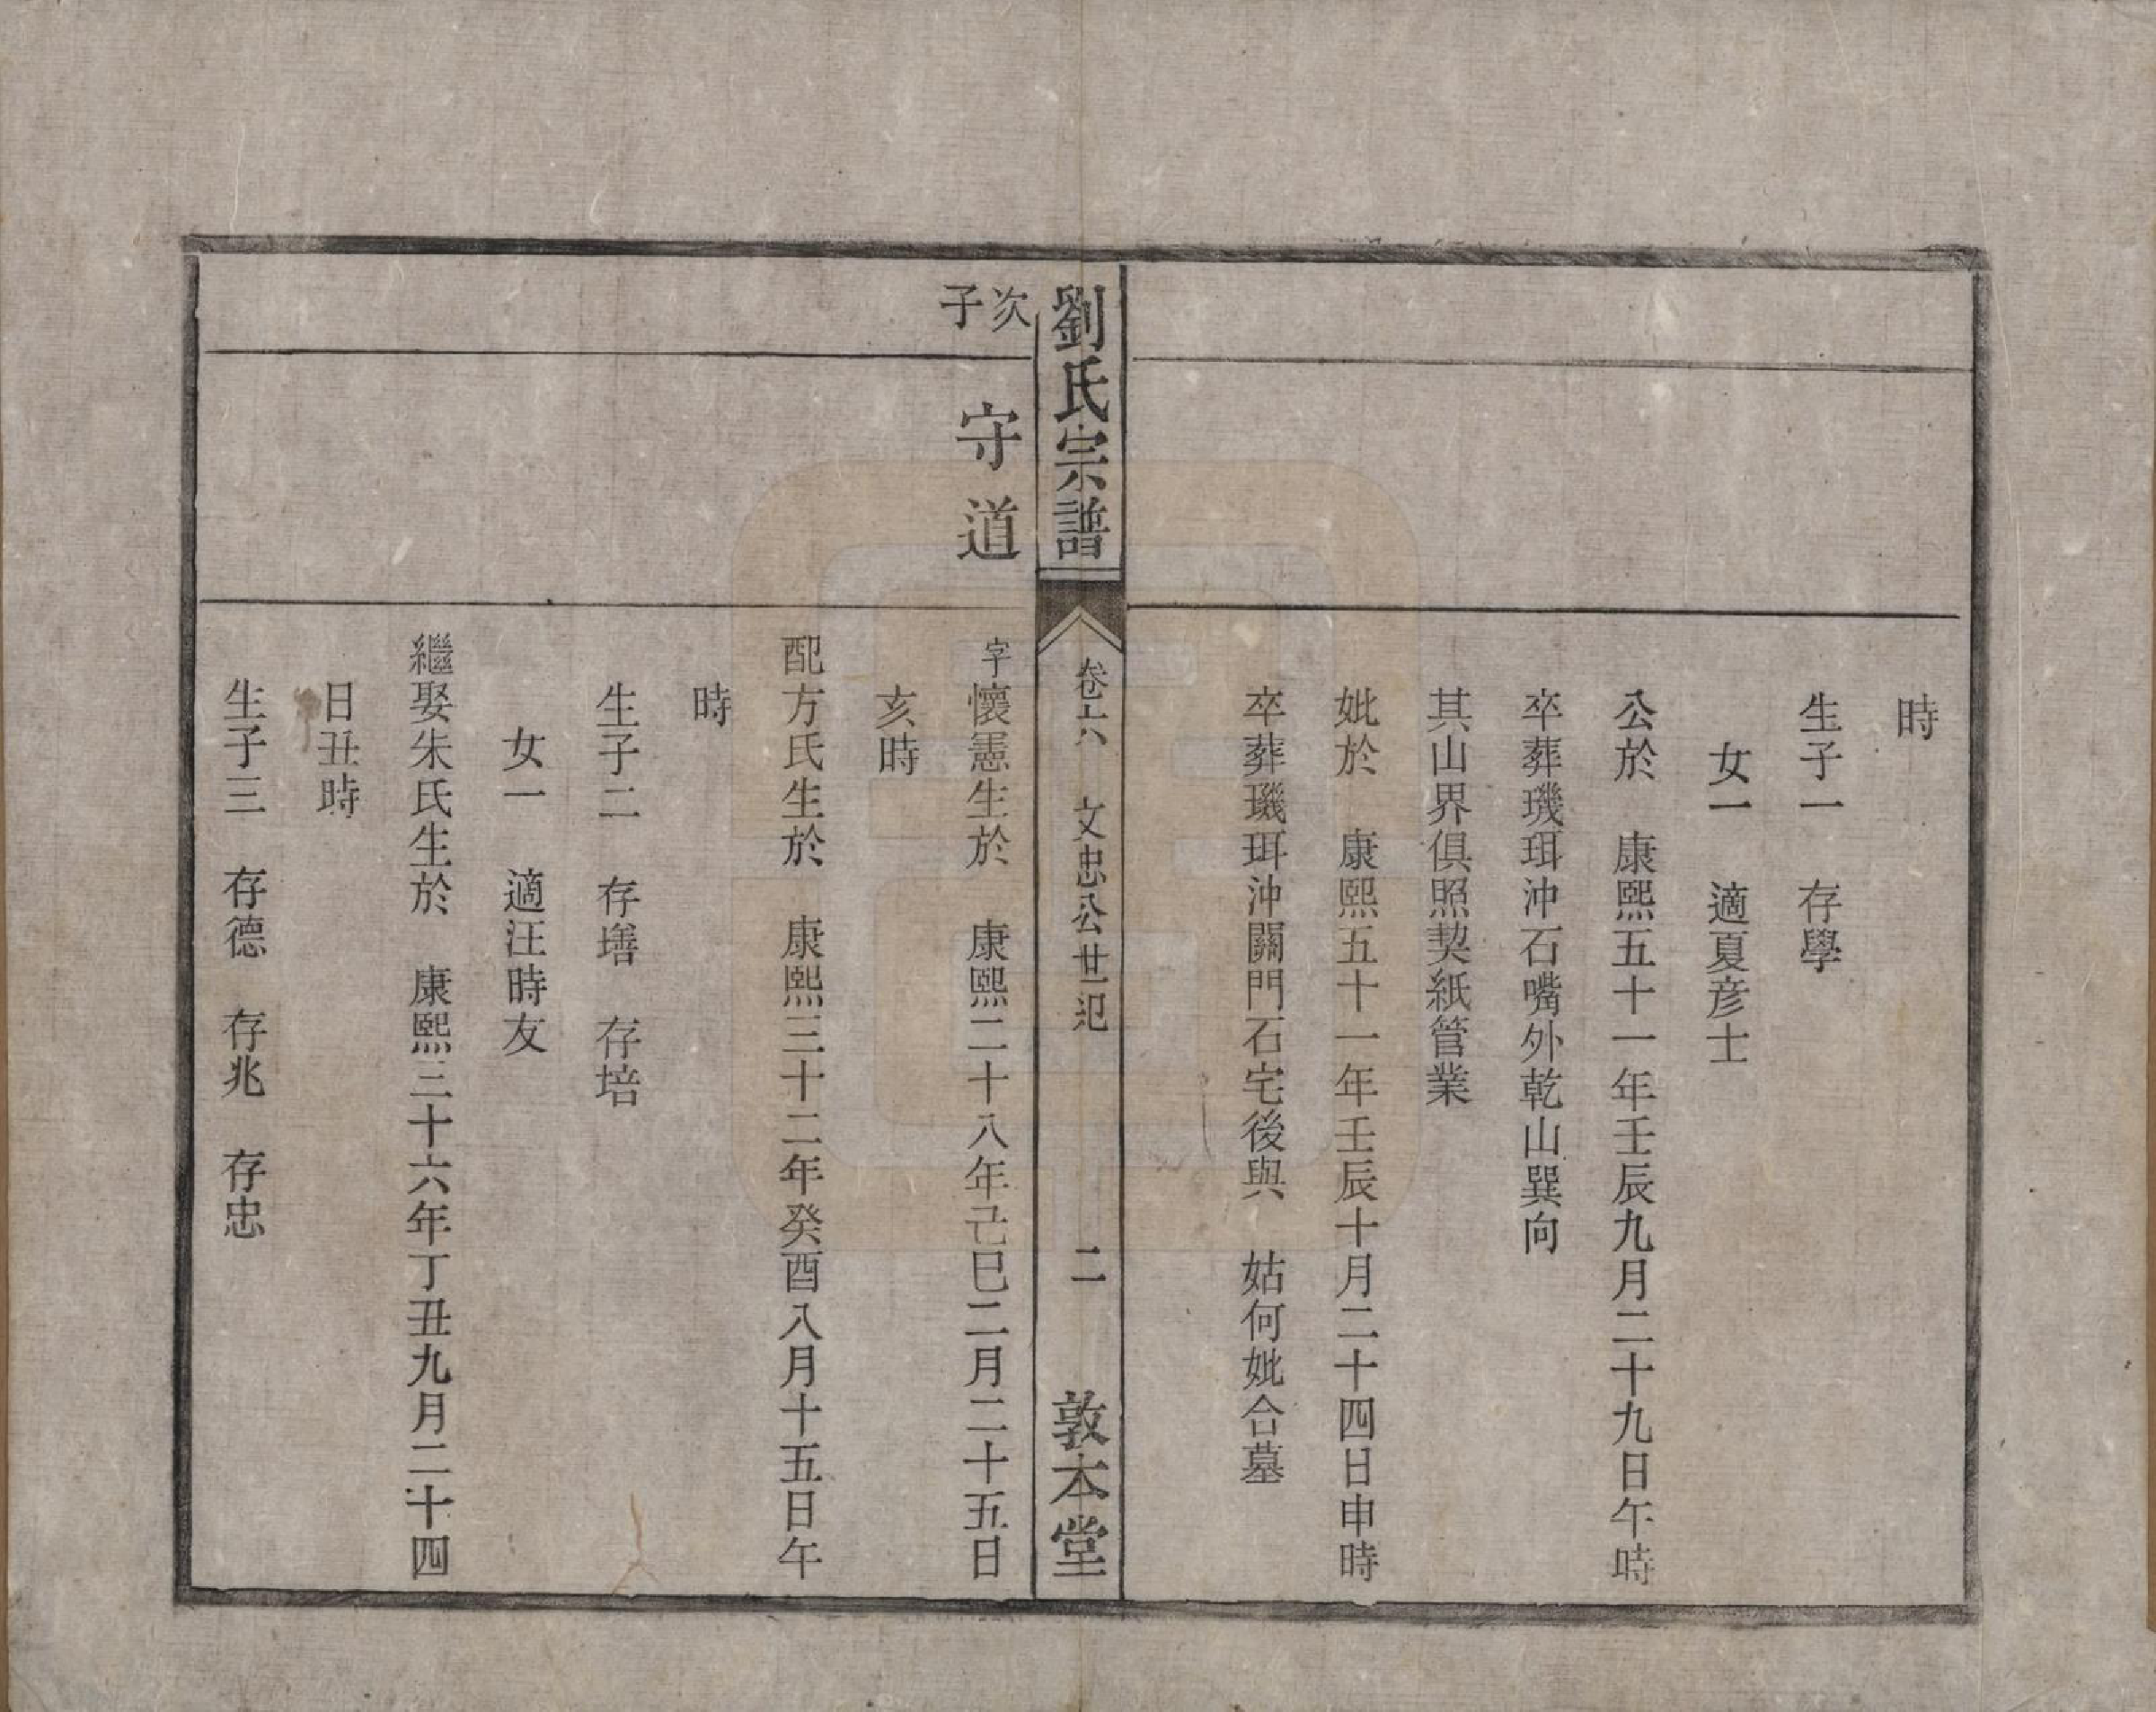 時
生子一　存學
女一　適夏彦士
公於　康熙五十一年壬辰九月二十九日午時
卒葬璣珥沖石嘴外乾山巽向
其山界俱照契紙管業
妣於　康熙五十一年壬辰十月二十四日申時
卒葬璣珥沖關門石宅後與　姑何妣合墓
劉氏宗譜
卷六　文忠公世系　二
敦本堂
次子
守道
字懷憲生於　康熙二十八年己巳二月二十五日
亥時
配方氏生於　康熙三十二年癸酉八月十五日午
時
生子二　存墡　存培
女一　適汪時友
繼娶朱氏生於　康熙三十六年丁丑九月二十四
日丑時
生子三　存德　存兆　存忠